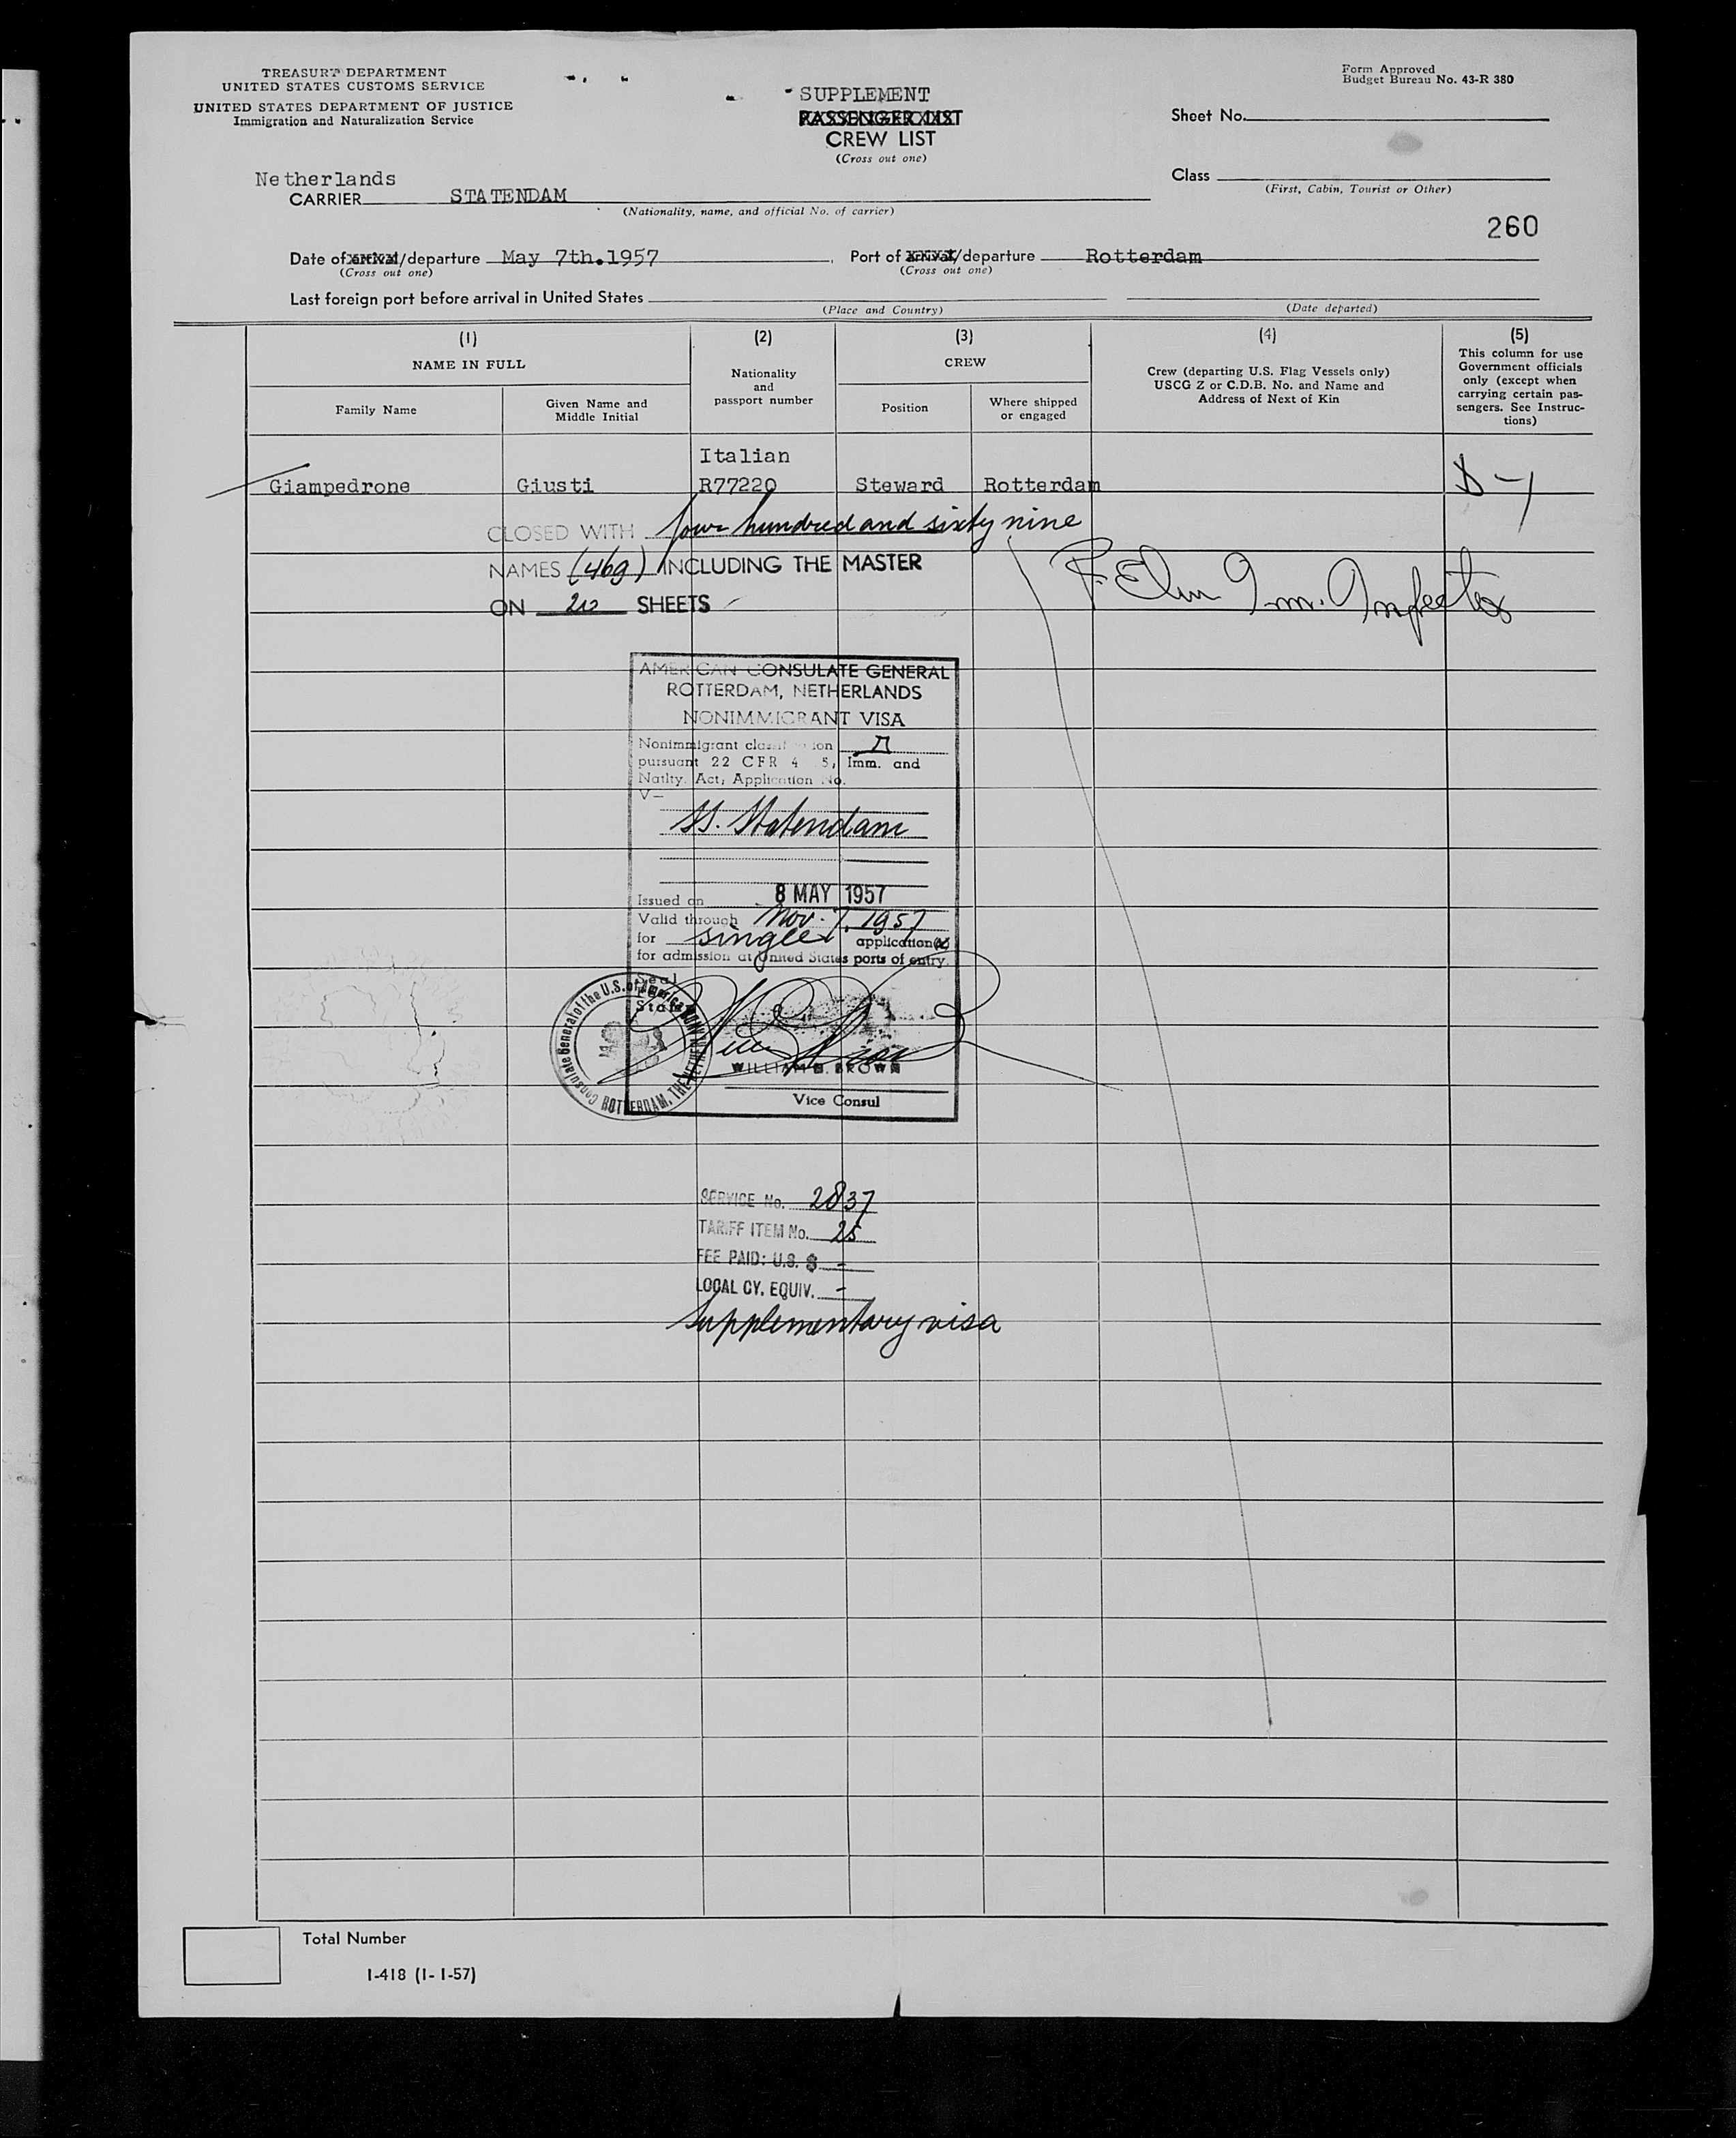 TREASURY DEPARTMENT
UNITED STATES CUSTOMS SERVICE
UNITED STATES DEPARTMENT OF JUSTICE
Immigration and Naturalization Service
SUPPLEMENT
PASSENGER LIST
CREW LIST
(Cross out one)
Form Approved
Budget Bureau No. 43-R 380
Sheet No.
Class
(First, Cabin, Tourist or Other)
Netherlands
CARRIER STATENDAM
(Nationality, name, and official No. of carrier)
260
Date of arrival/departure May 7th.1957
(Cross out one)
Port of arrival/departure Rotterdam
(Cross out one)
Last foreign port before arrival in United States
(Place and Country)
(Date departed)
(1)
NAME IN FULL
Family Name
Given Name and
Middle Initial
(2)
Nationality
and
passport number
(3)
CREW
Position
Where shipped
or engaged
(4)
Crew (departing U.S. Flag Vessels only)
USCG Z or C.D.B. No. and Name and
Address of Next of Kin
(5)
This column for use
Government officials
only (except when
carrying certain pas-
sengers. See Instruc-
tions)
Italian
Giampedrone Giusti R77220 Steward Rotterdam
CLOSED WITH four hundred and sixty nine
NAMES (469) INCLUDING THE MASTER
ON 20 SHEETS
Im. Inspector
AMERICAN CONSULATE GENERAL
ROTTERDAM, NETHERLANDS
NONIMMIGRANT VISA
Nonimmigrant classification
pursuant 22 CFR 4 5, Imm. and
Natlty. Act, Application No.
V—
SS. Statendam
Issued on 8 MAY 1957
Valid through Nov. 7, 1957
for single application(s)
for admission at United States ports of entry.
Seal
Consulate General of the U.S. of America
ROTTERDAM, THE NETHERLANDS
WILLIAM B. BROWN
Vice Consul
SERVICE No. 2837
TARIFF ITEM No. 25
FEE PAID: U.S. $ -
LOCAL CY. EQUIV. -
Supplementary visa
Total Number
I-418 (1-1-57)